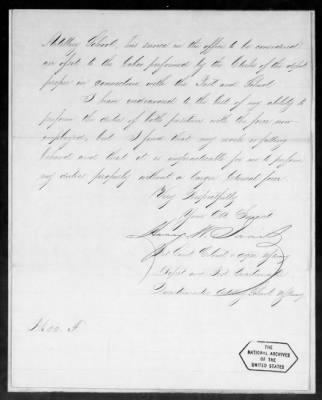 Artillery School, his service in the office to be considered
an offset to the labor performed by the Clerks of the depot
proper in connection with the Post and School.
I have endeavored to the best of my ability to
perform the duties of both positions with the force now
employed, but I find that my work is falling
behind and that it is impracticable for me to perform
my duties properly without a larger clerical force.
Very Respectfully
Your Obt Servant
Henry W.
Depot and Post Quartermaster
Quartermaster Artillery School, U.S. Army
THE
NATIONAL ARCHIVES
OF THE
UNITED STATES